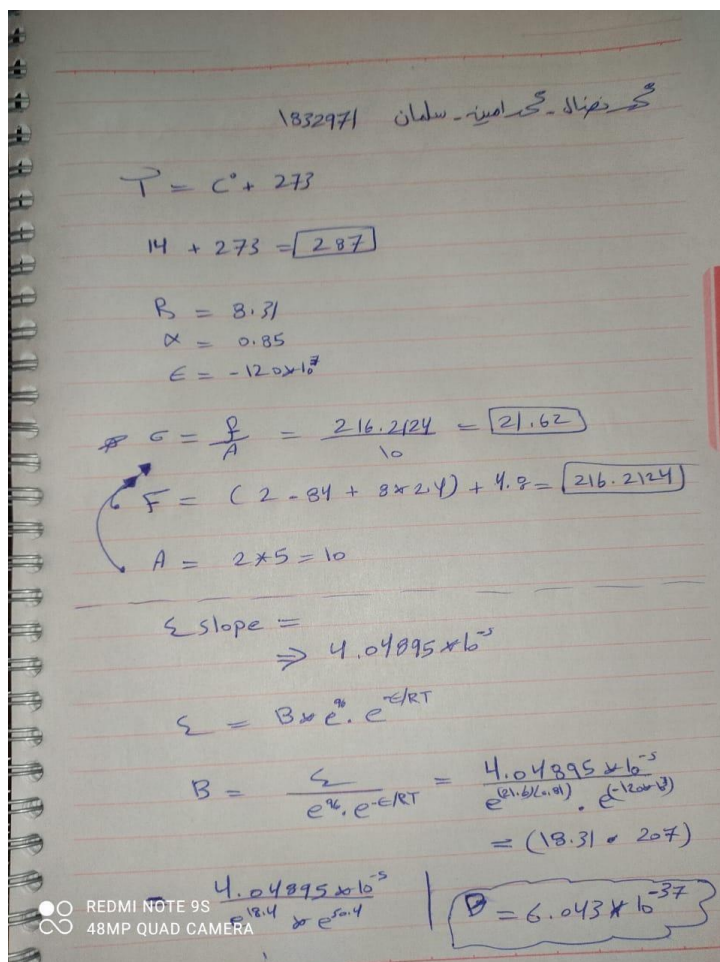 محمد نضال - محمد امين - سلمان 1832971
T = C° + 273
14 + 273 = 287
R = 8.31
α = 0.85
ϵ = -120*10³
σ = f/A = 216.2124/10 = 21.62
F = (2-84 + 8*2.4) + 4.8 = 216.2124
A = 2*5 = 10
Σ slope =
⇒ 4.04895*10⁻⁵
Σ = B* e . e^-ϵ/RT
B = Σ / e . e^-ϵ/RT = 4.04895*10⁻⁵ / e . e
= (8.31 * 287)
= 4.04895*10⁻⁵ / e^18.4 * e^50.4 | B = 6.043*10⁻³⁷
REDMI NOTE 9S
48MP QUAD CAMERA